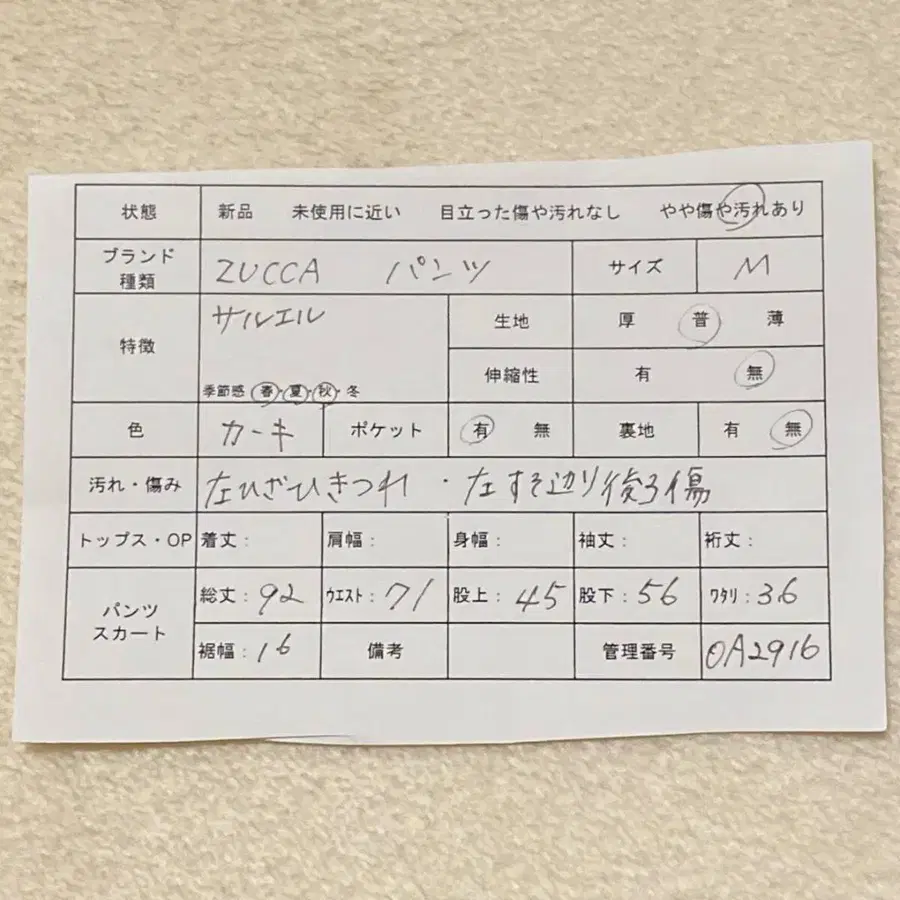 状態 新品 未使用に近い 目立った傷や汚れなし やや傷や汚れあり
ブランド 種類 ZUCCA パンツ サイズ M
特徴 サルエル 生地 厚 普 薄
季節感 春・夏・秋・冬 伸縮性 有 無
色 カーキ ポケット 有 無 裏地 有 無
汚れ・傷み 左ひざひきつれ・左すそ辺り後ろ傷
トップス・OP 着丈: 肩幅: 身幅: 袖丈: 裄丈:
パンツ スカート 総丈:92 ウエスト:71 股上:45 股下:56 ワタリ:36
裾幅:16 備考 管理番号 OA2916